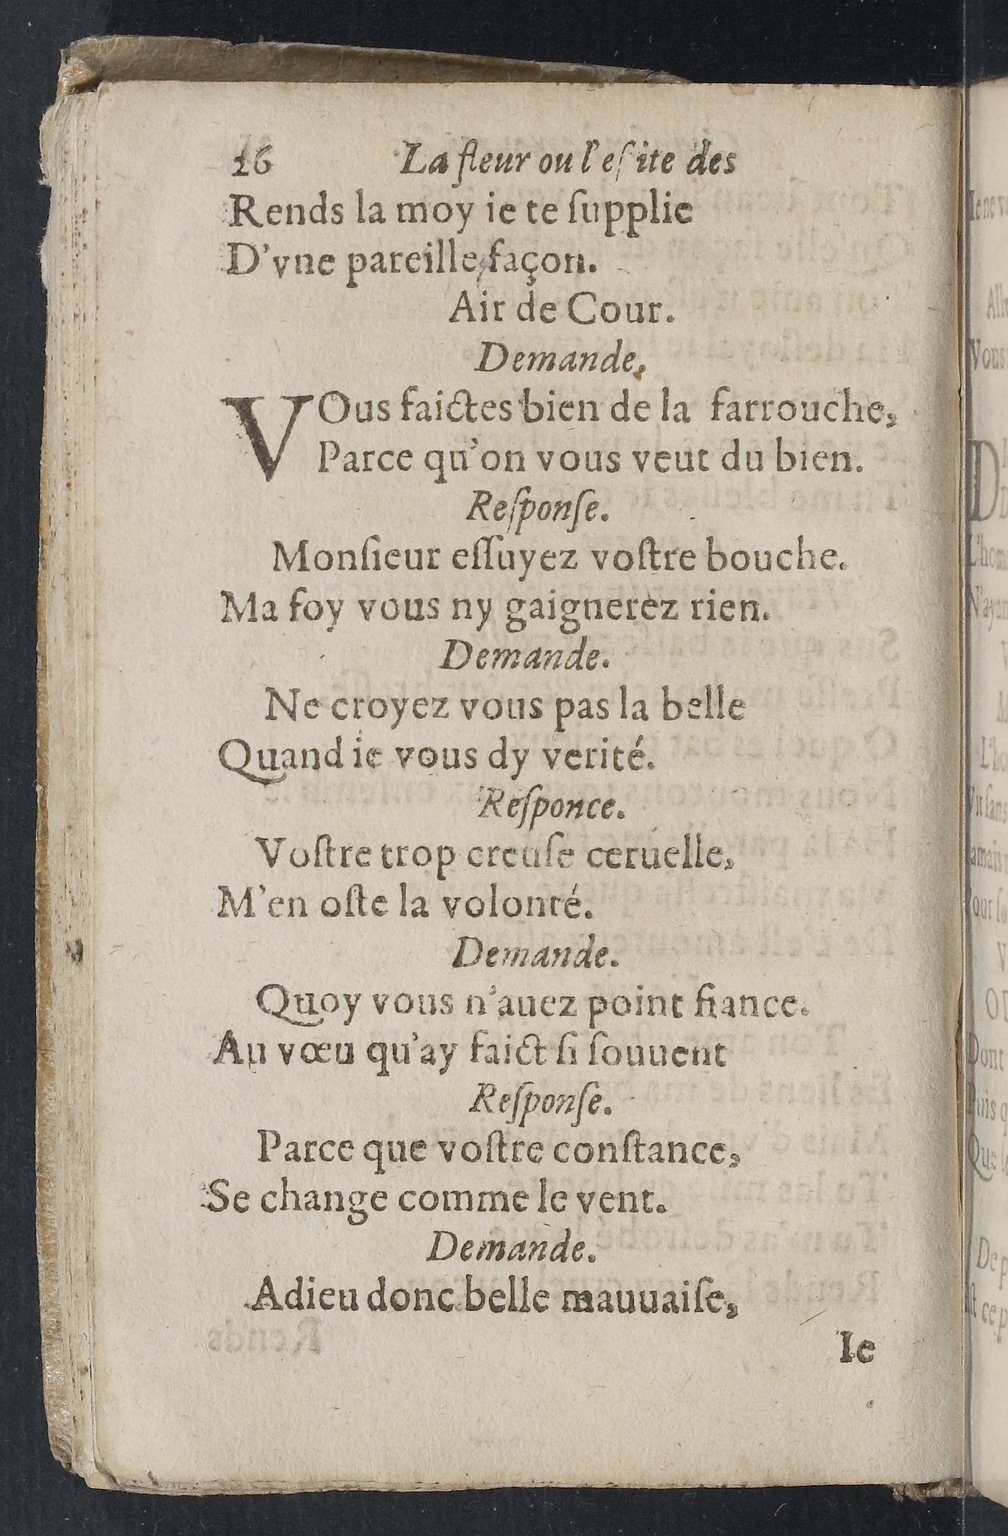 26 La fleur ou l'eſite des
Rends la moy ie te ſupplie
D'vne pareille façon.
Air de Cour.
Demande.
VOus faictes bien de la farrouche,
Parce qu'on vous veut du bien.
Reſponſe.
Monſieur eſſuyez voſtre bouche.
Ma foy vous ny gaignerez rien.
Demande.
Ne croyez vous pas la belle
Quand ie vous dy verité.
Reſponce.
Voſtre trop creuſe ceruelle,
M'en oſte la volonté.
Demande.
Quoy vous n'auez point fiance.
Au vœu qu'ay faict ſi ſouuent
Reſponſe.
Parce que voſtre conſtance,
Se change comme le vent.
Demande.
Adieu donc belle mauuaiſe,
Ie